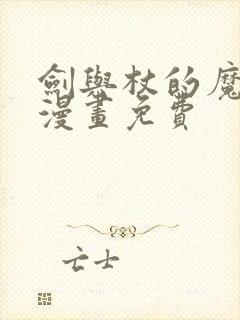 劍與杖的魔
漫畫免費
亡士